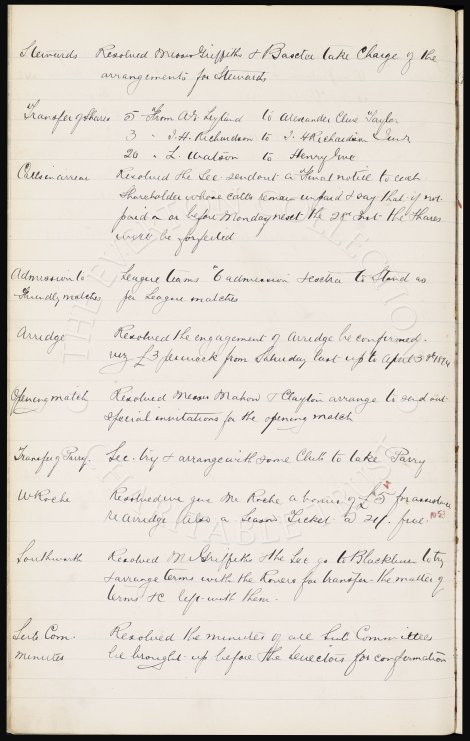 Stewards Resolved Messrs Griffiths & Baxter take Charge of the
arrangements for Stewards
Transfer of Shares 5 - From A E Leyland to Alexander Clive Taylor
3 " J. H. Richardson to J. H Richardson Junr
20 " L. Watson to Henry
Calls in arrear Resolved the Sec send out a Final notice to each
Shareholder whose calls remain unpaid & say that if not
paid on or before Monday next the 28th inst the Shares
will be forfeited
Admission to League teams 6d admission & extra to Stand as
Friendly matches for League matches
Arridge Resolved the engagement of Arridge be confirmed.
viz £3 per week from Saturday last up to April 30th 1894
Opening match Resolved Messrs Mahon & Clayton arrange to send out
Special invitations for the opening match
Transfer of Parry. Sec. try & arrange with some Club to take Parry
W Roche Resolved we give Mr Roche a bonus of £5 for assistance
re Arridge also a Season Ticket @ 21/. free.
Southworth Resolved Mr Griffiths & the Sec go to Blackburn to try
& arrange terms with the Rovers for transfer - the matter of
terms &c left with them.
Sub Com. Resolved the minutes of all Sub Committees
minutes be brought up before the Directors for confirmation
THE EVERTON COLLECTION
CHARITABLE TRUST